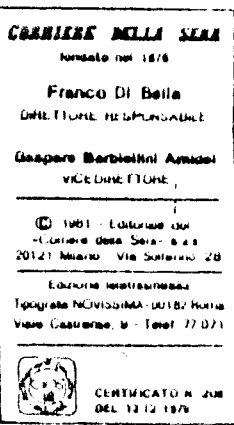 CORRIERE DELLA SERA
fondato nel 1876
Franco Di Bella
DIRETTORE RESPONSABILE
Gaspare Barbiellini Amidei
VICEDIRETTORE
© 1981 - Editoriale del
«Corriere della Sera» s.a.s.
20121 Milano - Via Solferino, 28
Edizione teletrasmessa
Tipografia NOVISSIMA - 00182 Roma
Viale Castrense, 9 - Telef. 77.071
CERTIFICATO N. 208
DEL 13-12-1979